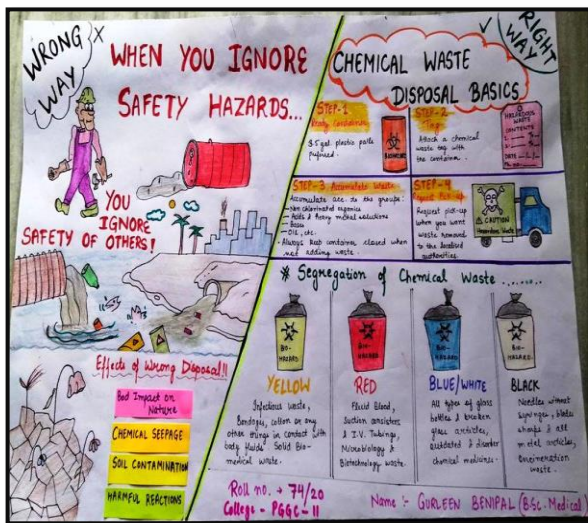 WRONG
WAY
X
WHEN YOU IGNORE
SAFETY HAZARDS...
YOU
IGNORE
SAFETY OF OTHERS!
Effects of Wrong Disposal!!
Bad Impact on
Nature
CHEMICAL SEEPAGE
SOIL CONTAMINATION
HARMFUL REACTIONS
RIGHT
WAY
CHEMICAL WASTE
DISPOSAL BASICS
STEP-1
Container
gal. plastic pails
STEP-2
Tag
Attach a chemical
waste tag with
the container.
HAZARDOUS
WASTE
CONTENTS
DATE
STEP-3 Accumulate Waste
Accumulate acc. to the groups:
- Non chlorinated organics
- Acids & heavy metal solutions
- Bases
- OIL, etc.
- Always keep container closed when
not adding waste.
STEP-4
Request Pick-up
Request pick-up
when you want
waste removed
to the localised
authorities.
CAUTION
Hazardous Waste
# Segregation of Chemical Waste .......
BIO-
HAZARD
YELLOW
Infectious waste,
Bandages, cotton or any
other things in contact with
body fluids Solid Bio-
medical waste.
BIO-
HAZARD
RED
Fluid Blood,
Suction
& I.V. Tubings,
Microbiology &
Biotechnology waste.
BIO-
HAZARD
BLUE/WHITE
All types of glass
bottles & broken
glass articles,
outdated &
chemical medicines.
BIO-
HAZARD
BLACK
Needles without
syringes, blades
sharps & all
metal articles,
waste.
Roll no. → 74/20
College - PGGC-11
Name :- GURLEEN BENIPAL (BSc. Medical)